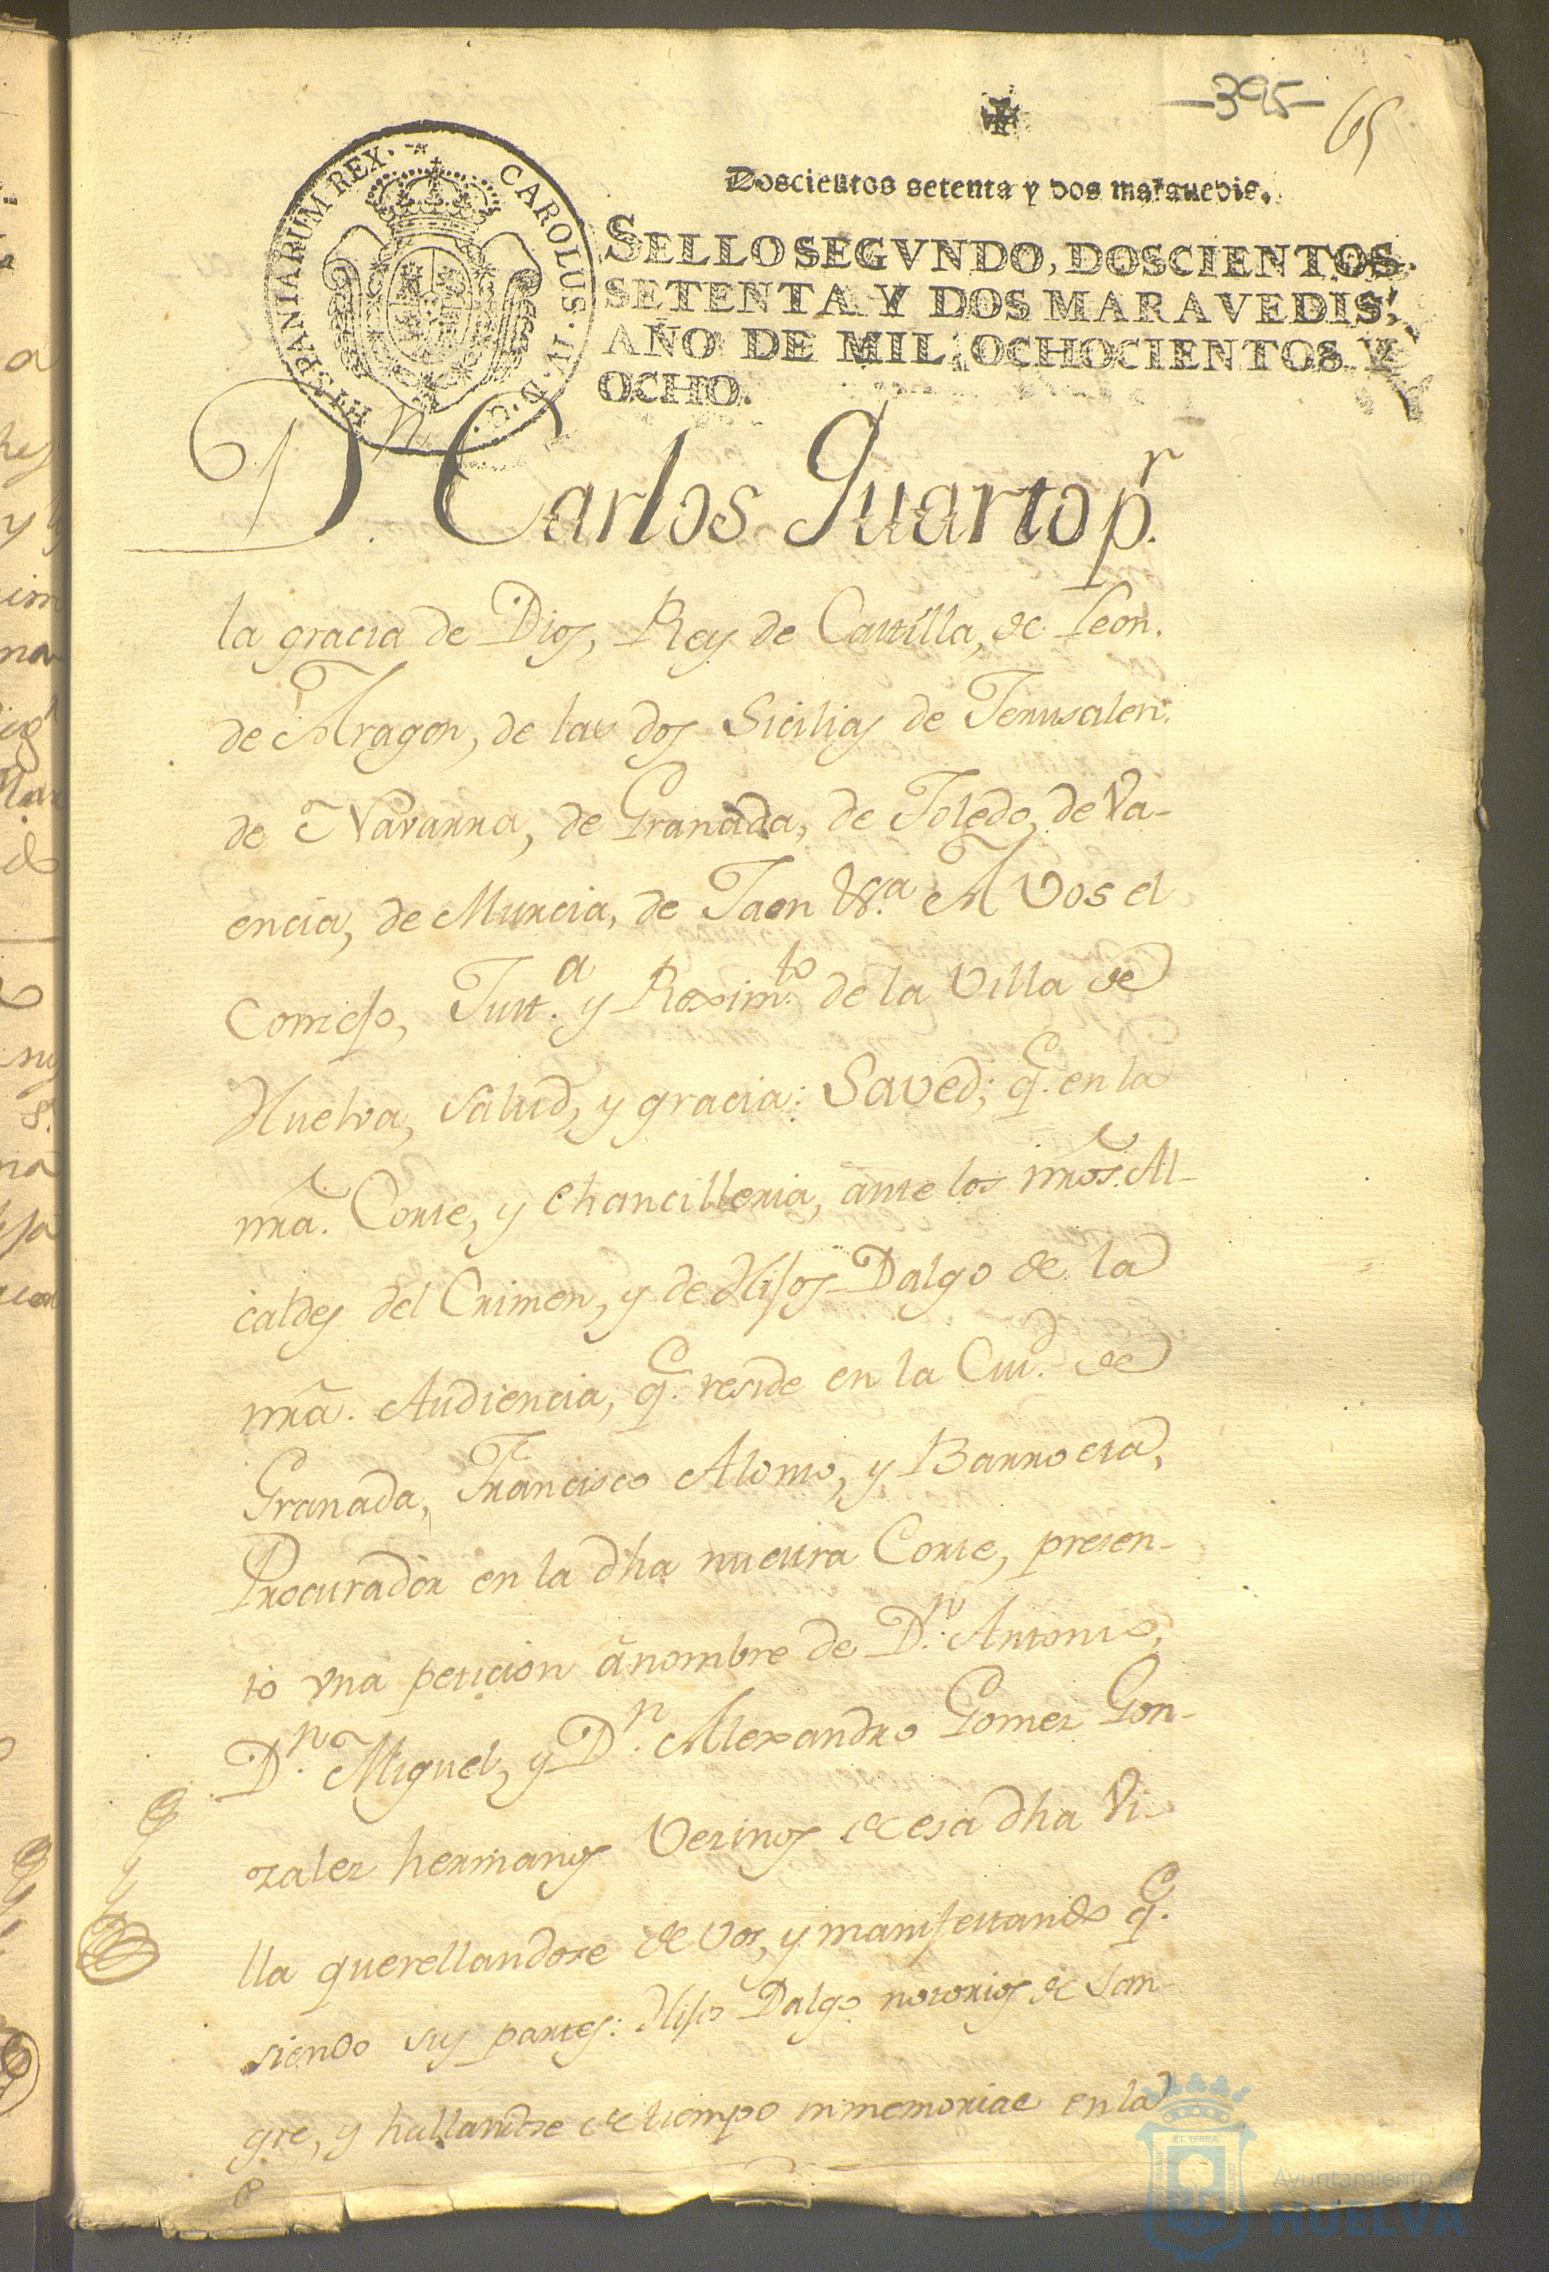 -395-
65
Doscientos setenta y dos marauedis.
HISPANIARUM REX. CAROLUS. IV. D. G.
SELLO SEGVNDO, DOSCIENTOS
SETENTA Y DOS MARAVEDIS,
AÑO DE MIL OCHOCIENTOS Y
OCHO.
Dn. Carlos Quarto pr.
la gracia de Dios, Rey de Castilla, de Leon.
de Aragon, de las dos Sicilias de Jerusalen.
de Navarra, de Granada, de Toledo, de Va-
encia, de Murcia, de Jaen &.a A Vos el
Concejo, Just.a y Reximto. de la Villa de
Huelva, salud, y gracia: Saved; q.e en la
nrã. Corte, y Chancilleria, ante los nrõs. Al-
caldes del Crimen, y de Hijos-Dalgo de la
nrã. Audiencia, q.e reside en la Ciud. de
Granada, Francisco Alonso, y Barroeta,
Procurador en la dha nuestra Corte, presen-
tó vna peticion ã nombre de Dn. Antonio,
Dn. Miguel, y Dn. Alexandro Gomez Gon-
zalez hermanos Vezinos de esa dha Vi-
lla querellandose de Vos, y manifestando q.e
siendo sus partes: Hijos Dalgo notorios de San-
gre, y hallandose de tiempo inmemorial en la
ET TERRA
Ayuntamiento de
HUELVA